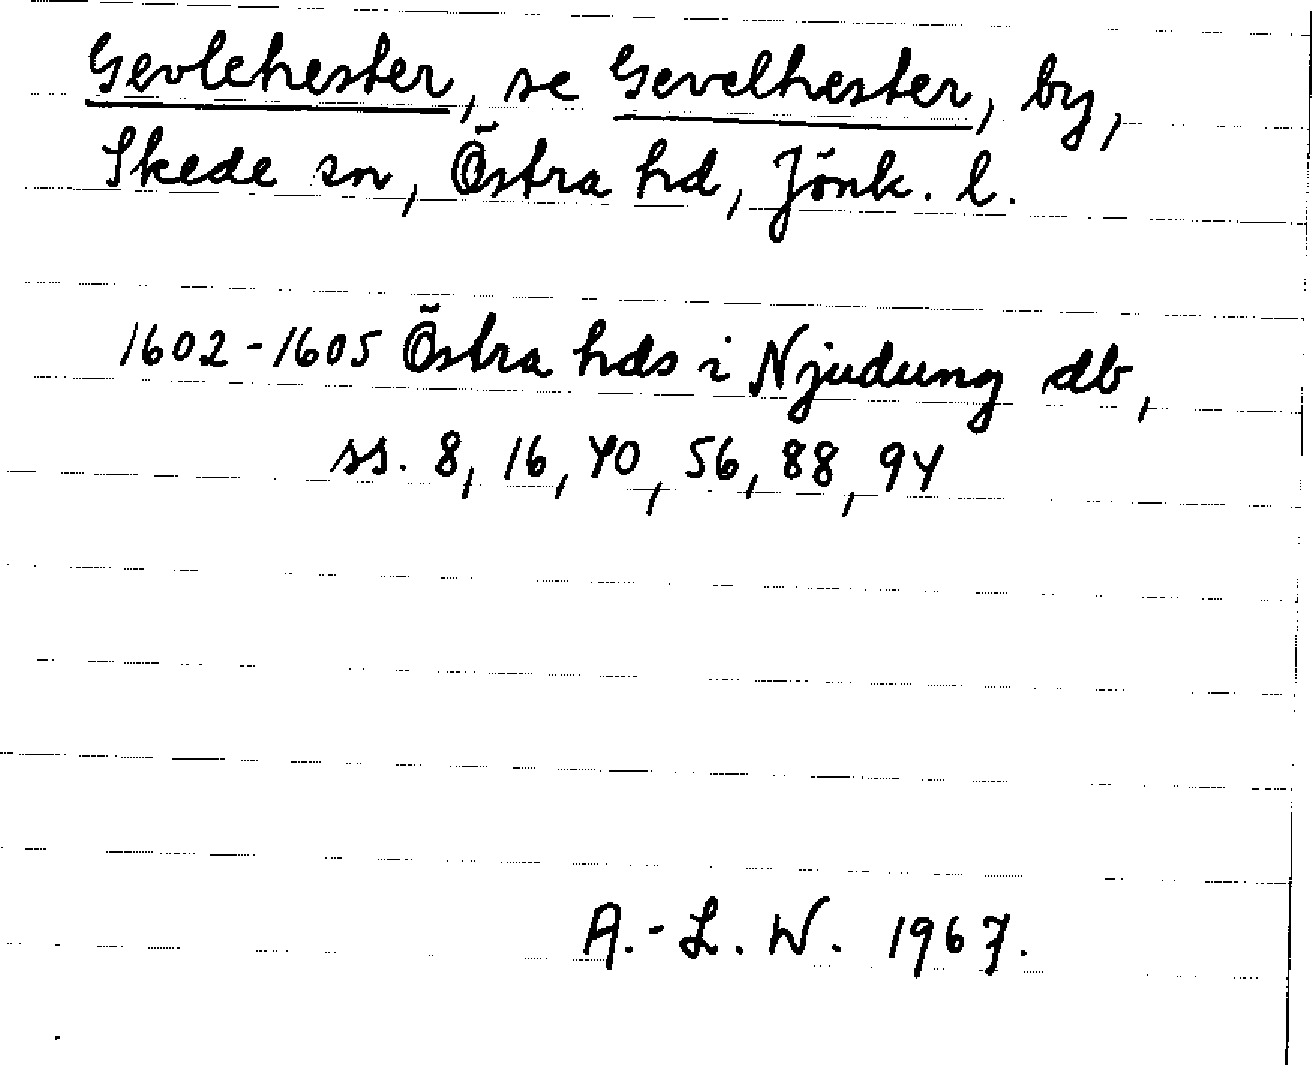 Gevlehester, se Gevelhester, by,
Skede sn, Östra hd, Jönk. l.
1602-1605 Östra hds i Njudung db,
ss. 8, 16, 40, 56, 88, 94
A.-L. W. 1967.